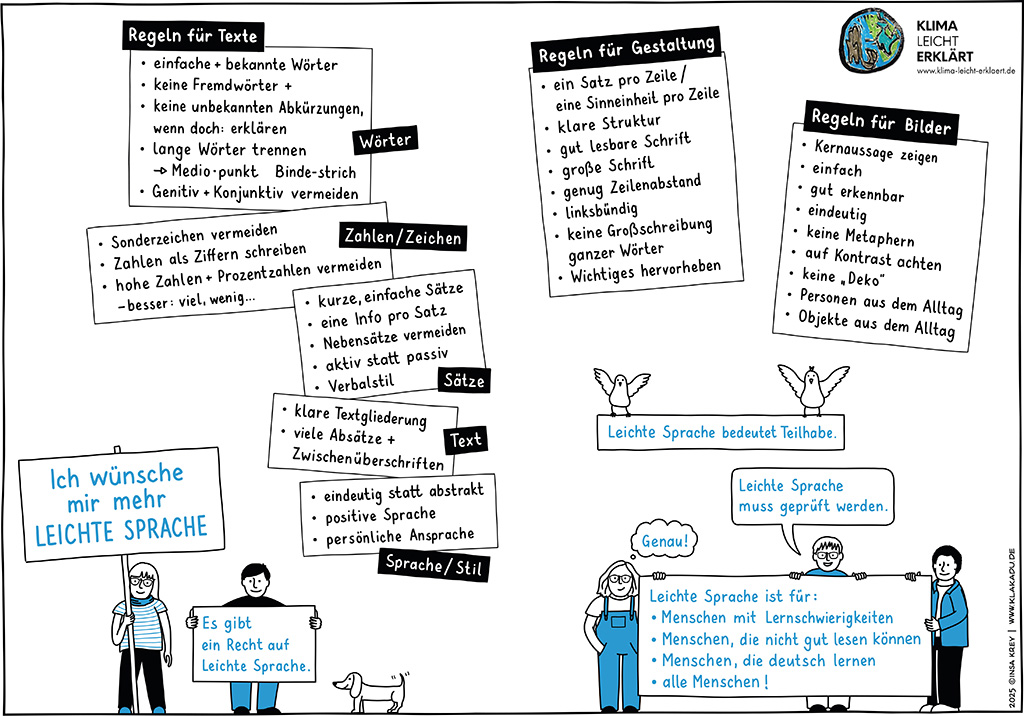 Regeln für Texte
• einfache + bekannte Wörter
• keine Fremdwörter +
• keine unbekannten Abkürzungen,
wenn doch: erklären
• lange Wörter trennen
→ Medio·punkt Binde-strich
• Genitiv + Konjunktiv vermeiden
Wörter
• Sonderzeichen vermeiden
• Zahlen als Ziffern schreiben
• hohe Zahlen + Prozentzahlen vermeiden
– besser: viel, wenig...
Zahlen/Zeichen
• kurze, einfache Sätze
• eine Info pro Satz
• Nebensätze vermeiden
• aktiv statt passiv
• Verbalstil
Sätze
• klare Textgliederung
• viele Absätze +
Zwischenüberschriften
Text
• eindeutig statt abstrakt
• positive Sprache
• persönliche Ansprache
Sprache/Stil
Regeln für Gestaltung
• ein Satz pro Zeile /
eine Sinneinheit pro Zeile
• klare Struktur
• gut lesbare Schrift
• große Schrift
• genug Zeilenabstand
• linksbündig
• keine Großschreibung
ganzer Wörter
• Wichtiges hervorheben
KLIMA
LEICHT
ERKLÄRT
www.klima-leicht-erklaert.de
Regeln für Bilder
• Kernaussage zeigen
• einfach
• gut erkennbar
• eindeutig
• keine Metaphern
• auf Kontrast achten
• keine „Deko“
• Personen aus dem Alltag
• Objekte aus dem Alltag
Leichte Sprache bedeutet Teilhabe.
Ich wünsche
mir mehr
LEICHTE SPRACHE
Es gibt
ein Recht auf
Leichte Sprache.
Genau!
Leichte Sprache
muss geprüft werden.
Leichte Sprache ist für:
• Menschen mit Lernschwierigkeiten
• Menschen, die nicht gut lesen können
• Menschen, die deutsch lernen
• alle Menschen!
2025 ©INSA KREY | WWW.KLAKADU.DE